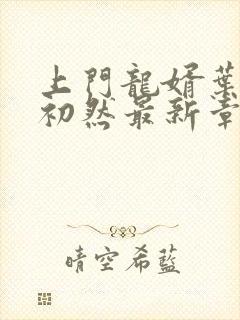 上門龍婿葉
初然最新章
晴空希藍